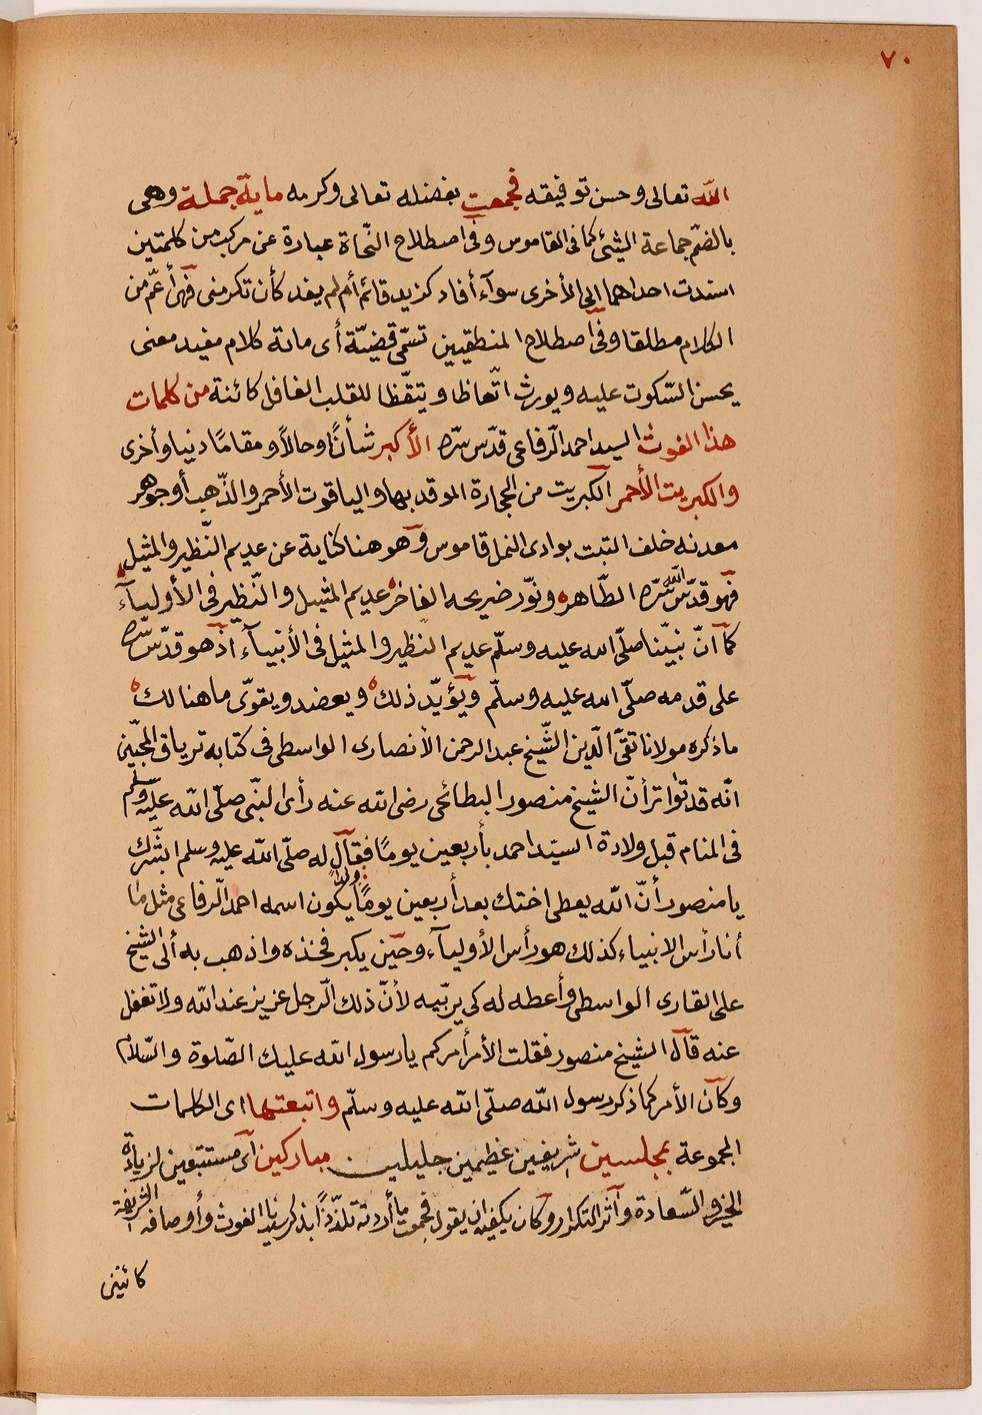 ٧٠
الله تعالى وحسن توفيقه فجمعت بفضله تعالى وكرمه ماية جملة وهى
بالضم جماعة الشيئ كما فى القاموس وفى اصطلاح النّحاة عبارة عن مركب من كلمتين
اسندت احداهما الى الأخرى سوآء أفاد كزيد قائم أم لم يفد كأن تكرمنى فهى أعمّ من
الكلام مطلقا وفى اصطلاح المنطقيين تسمّى قضيّة أى ماية كلام مفيد معنى
يحسن السّكوت عليه ويورث اتّعاظا وتيقّظا للقلب الغافل كائنة من كلمات
هذا الغوث السيد احمد الرّفاعى قدّس سرّه الأكبر شأنًا وحالاً ومقامًا دنيا وأخرى
والكبريت الأحمر الكبريت من الحجارة الموقد بها والياقوت الأحمر والذّهب أو جوهر
معدنه خلف التبت بوادى النمل قاموس وهو هنا كناية عن عديم النّظير والمثيل
فهو قدّس الله سرّه الطّاهر ونوّر ضريحه الفاخر عديم المثيل والنّظير فى الأوليآء
كما انّ نبيّنا صلّى الله عليه وسلّم عديم النظير والمثيل فى الأنبيآء اذ هو قدّس سرّه
على قدمه صلّى الله عليه وسلّم ويؤيّد ذلك ويعضد ويقوّى ما هنالك
ما ذكره مولانا تقىّ الدّين الشّيخ عبد الرحمن الأنصارى الواسطى فى كتابه ترياق المحبّين
انّه قد تواتر أنّ الشيخ منصور البطائحى رضى الله عنه رأى النبّى صلّى الله عليه وسلم
فى المنام قبل ولادة السيّد احمد بأربعين يومًا فقال له صلّى الله عليه وسلم ابشّرك
يا منصور أنّ الله يعطى اختك بعد أربعين يومًا ولدًا يكون اسمه احمد الرّفاعى مثل ما
أنا رأس الانبياء كذلك هو رأس الأوليآء وحين يكبر فخذه واذهب به ألى الشيخ
على القارى الواسطى وأعطه له كى يربّيه لأنّ ذلك الرّجل عزيز عند الله ولا تغفل
عنه قال الشيخ منصور فقلت الأمر أمركم يا رسول الله عليك الصّلوة والسّلام
وكان الأمر كما ذكر رسول الله صلّى الله عليه وسلّم واتبعتها اى الكلمات
المجموعة بمجلسين شريفين عظيمين جليلين مباركين أى مستتبعين لزيادة
الخير والسّعادة وآثر التكرار وكان يكفيه ان يقول فجمعت ما أردته تلذّذًا بذكر سيدنا الغوث وأوصافه الشريفة
كائنين